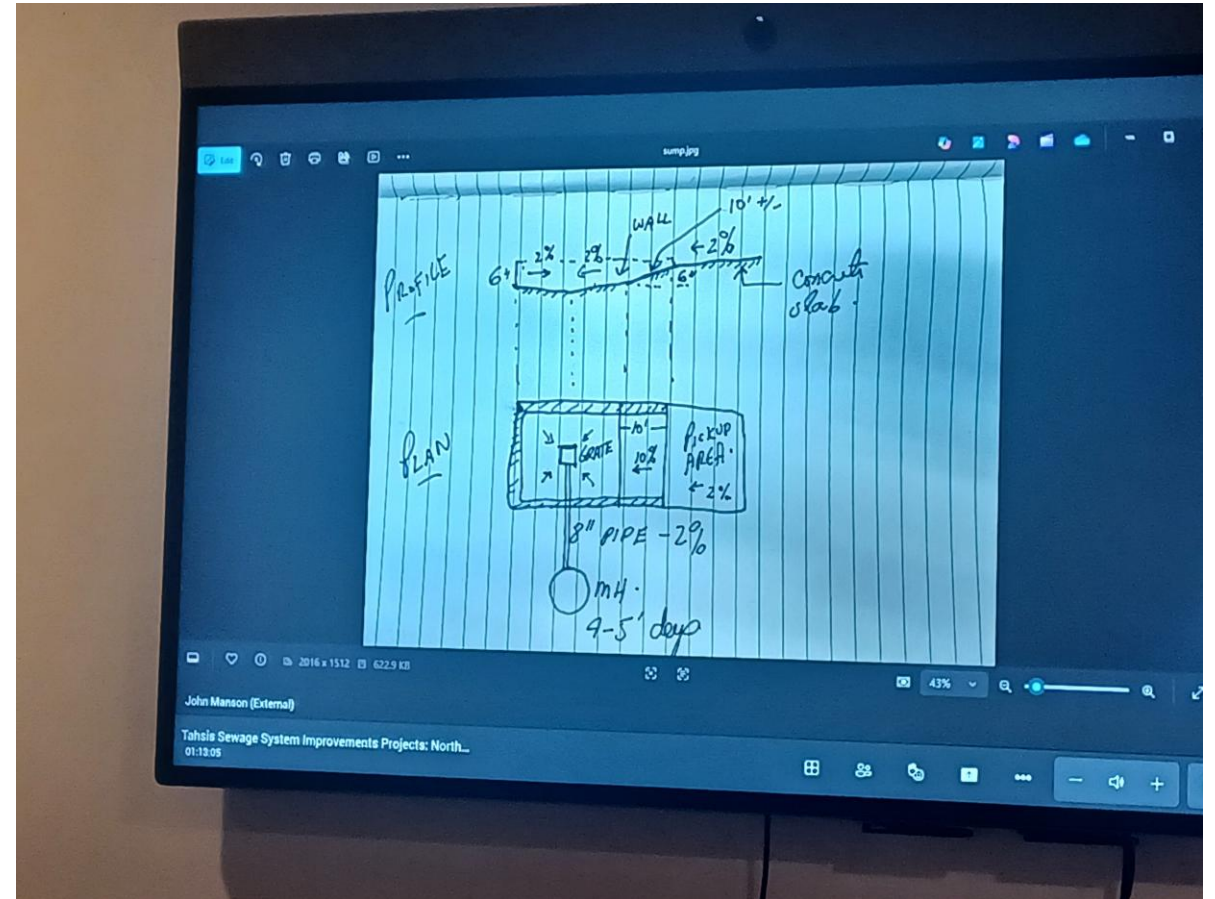 Edit
sump.jpg
10' +/-
WALL
2%
2%
←2%
PROFILE
6"
6"
Concrete
slab.
PLAN
GRATE
10'
10%
PICKUP
AREA.
← 2%
8" PIPE - 2%
MH.
4-5' deep
2016 x 1512
622.9 KB
43%
John Manson (External)
Tahsis Sewage System Improvements Projects: North...
01:13:05